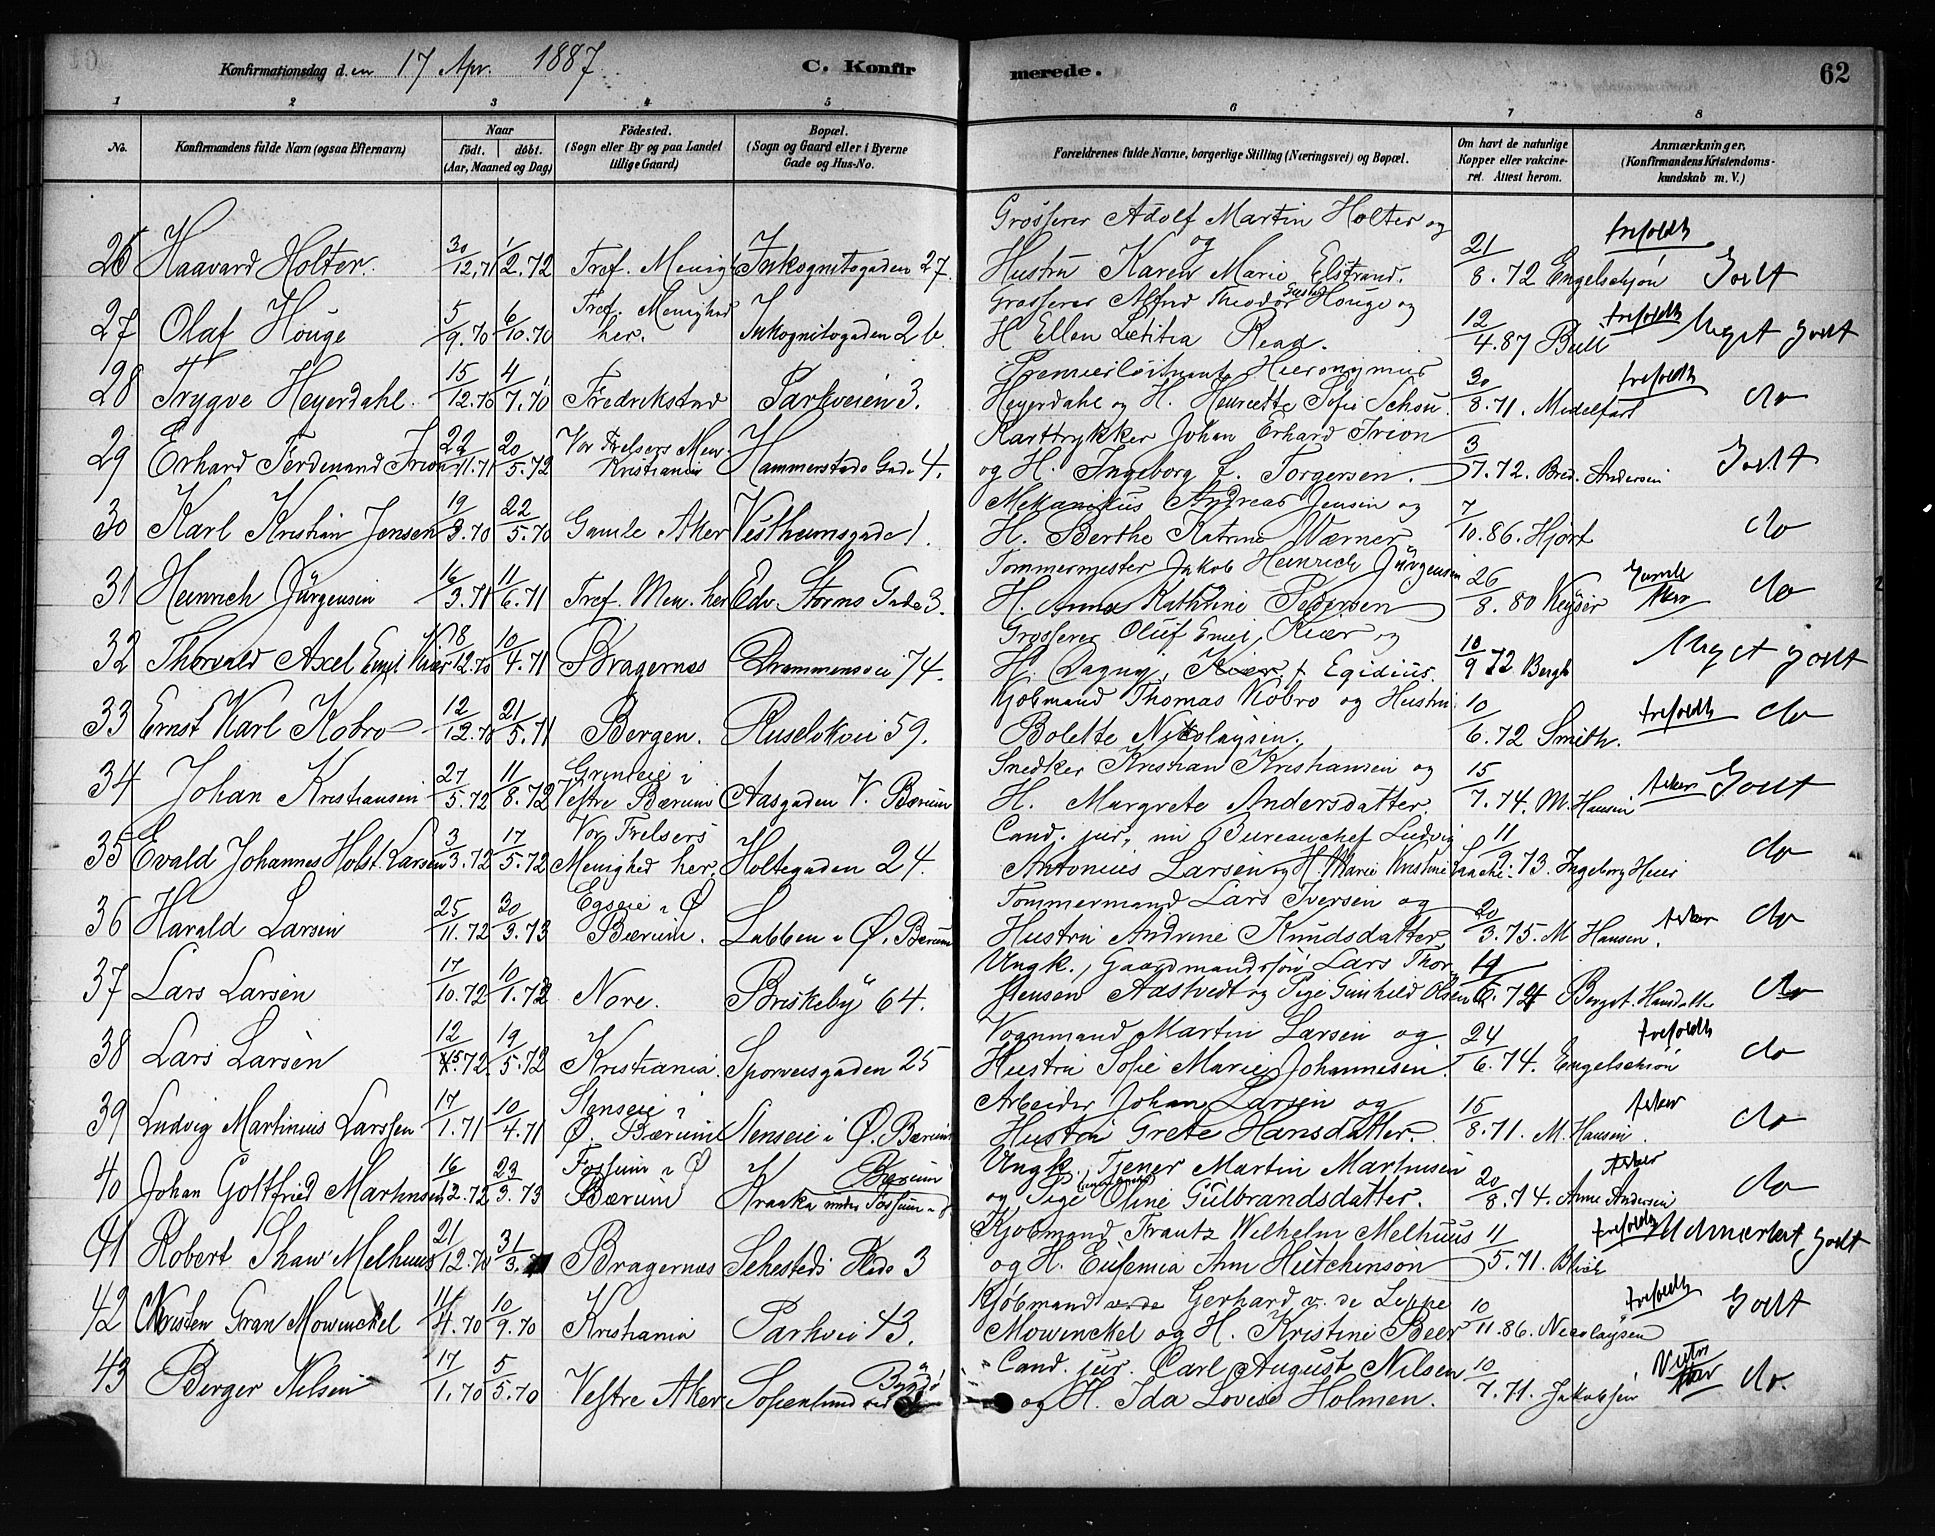 Konfirmationsdag d. en 17 Apr. 1887
C. Konfirmerede.
62
1 2 3 4 5 6 7 8
No.
Konfirmandens fulde Navn (ogsaa Efternavn)
Naar
født. døbt.
(Aar, Maaned og Dag)
Fødested.
(Sogn eller By og paa Landet
tillige Gaard)
Bopæl.
(Sogn og Gaard eller i Byerne
Gade og Hus-No.
Forældrenes fulde Navne, borgerlige Stilling (Næringsvei) og Bopæl.
Om havt de naturlige
Kopper eller vakcine-
ret. Attest herom.
Anmærkninger.
(Konfirmandens Kristendoms-
kundskab m. V.)
Grosserer Adolf Martin Holter og
26 Haavard Holter. 30/12.71 1/2.72 Tref. Menigh Inkognitogaden 27. Hustru Karen Marie Elstrand. 21/8.72 Engelschjøn trefoldh Godt
Grosserer Alfred Theodor Gustav Houge og
27 Olaf Houge 5/9.70 6/10.70 Tref. Menighed her. Inkognitogaden 2 b. H Ellen Lætitia Read. 12/4.87 Bull trefoldh Meget godt
Premierløitnant Hieronymus
28 Trygve Heyerdahl. 15/12.70 4/7.70 Fredrikstad Parkveien 3. Heyerdahl og H. Henriette Sofie Schou 30/8.71. Medelfart trefoldh do
Karttrykker Johan Erhard Trion
29 Erhard Ferdinand Trion 22/11.71 20/5.72 Vor Frelsers Men. Kristiania Hammerstads Gade 4. og H. Ingeborg f. Torgersen. 3/7.72. Bred. Andersen Godt
Mekanikus Andreas Jensen og
30 Karl Kristian Jensen 19/3.70 22/5.70 Gamle Aker Vestheimsgade 1. H. Berthe Katrine Værner 7/10.86. Hjort do
Tømmermester Jakob Heinrich Jürgensen
31 Heinrich Jürgensen 16/3.71 11/6.71 Tref. Men. her Edv. Storms Gade 3. H. Anna Kathrine Pedersen 26/8.80 Keyser Gamle Aker do
Grosserer Oluf Emil Kiær og
32 Thorvald Axel Emil Kiær 8/12.70 10/4.71 Bragernæs Drammensvei 74. H. Dagny, Kiær f Egidius. 10/9 72 Bergh Meget godt
Kjøbmand Thomas Kobro og Hustru
33 Ernst Karl Kobro 12/12.70 21/5.71 Bergen. Ruseløkvei 59. Bolette Nikolaysen. 10/6.72 Smith. trefoldh do
Snedker Kristian Kristiansen og
34 Johan Kristiansen 27/5.72 11/8.72 Grinieie i Vestre Bærum Aasgaden V. Bærum H. Margrete Andersdatter 15/7.74. M. Hansen Asker Godt
Cand. jur. nu Bureauchef Ludvig
35 Evald Johannes Holst Larsen 3/3.72 17/5.72 Vor Frelsers Menighed her. Holtegaden 24. Antonius Larsen og H. Marie Kristine 11/9.73. Ingeborg Heier do
Tømmermand Lars Iversen og
36 Harald Larsen 25/11.72 30/3.73 Egseie i Ø Bærum. Labben i Ø. Bærum Hustru Andrine Knudsdatter. 20/3.75. M Hansen. Asker do
Ungk., Gaardmandssøn Lars Thor-
37 Lars Larsen 17/10.72 10/1.72 Nore. Briskeby 64. stensen Aastvedt og Pige Gunhild Olsen 14/6.74 Berget. Hansdatte do
Vognmand Martin Larsen og
38 Lars Larsen 12/5.72 19/5.72 Kristiania. Sporveisgaden 25 Hustru Sofie Marie Johannesen. 24/6.74. Engelschiøn trefoldh do
Arbeider Johan Larsen og
39 Ludvig Martinius Larssen 17/1.71 10/4.71 Stenseie i Ø. Bærum Stenseie i Ø. Bærum Hustru Grete Hansdatter. 15/8.71. M. Hansen. Asker do
Ungk., Tjener Martin Martinsen
40 Johan Gottfried Martinsen 16/12.72 23/3.73 Fossum i Ø Bærum Kraaka under Fossum i Ø Bærum og Pige Oline Gulbrandsdatter. 20/8.74. Anne Andersen Asker do
Kjøbmand Frantz Wilhelm Melhuus
41 Robert Shaw Melhuus 21/12.70 31/3. Bragernæs Sehesteds Plads 3 og H. Eufemia Ann Hutchinson 11/5.71. Blich trefoldh Udmerket godt
Kjøbmand Gerhard v. de Lippe
42 Kristen Gran Mowinckel 11/4.70 10/9.70 Kristiania Parkvei 43. Mowinckel og H. Kristine Beer 10/11.86. Nicolaysen trefoldh Godt
Cand. jur. Carl August Nilsen
43 Berger Nilsen 17/1.70 5/5.70 Vestre Aker Sofienlund ved Bygdø og H. Ida Lovise Holmen. 10/7.71. Jakobsen Vestre Aker do.